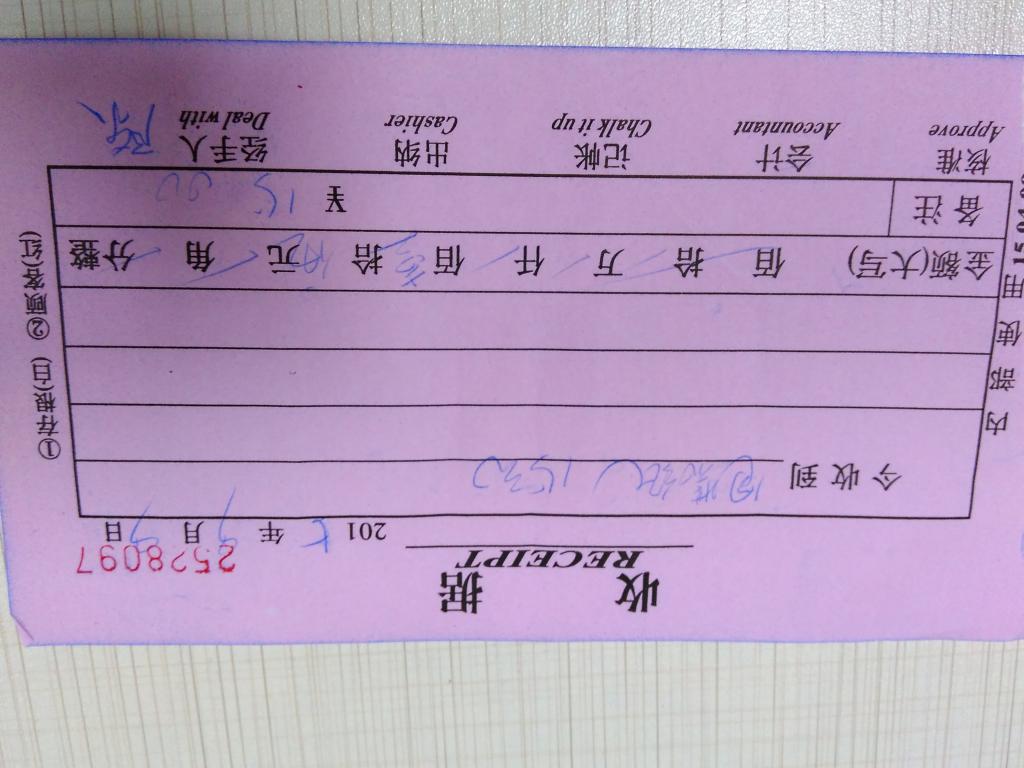 收 据
RECEIPT
2528097
201 年 月 日
今收到
金额(大写) 佰 拾 万 仟 佰 拾 元 角 分整
备注 ¥ 15 00
核准 会计 记帐 出纳 经手人 陈
Approve Accountant Chalk it up Cashier Deal with
①存根(白) ②顾客(红)
内部使用